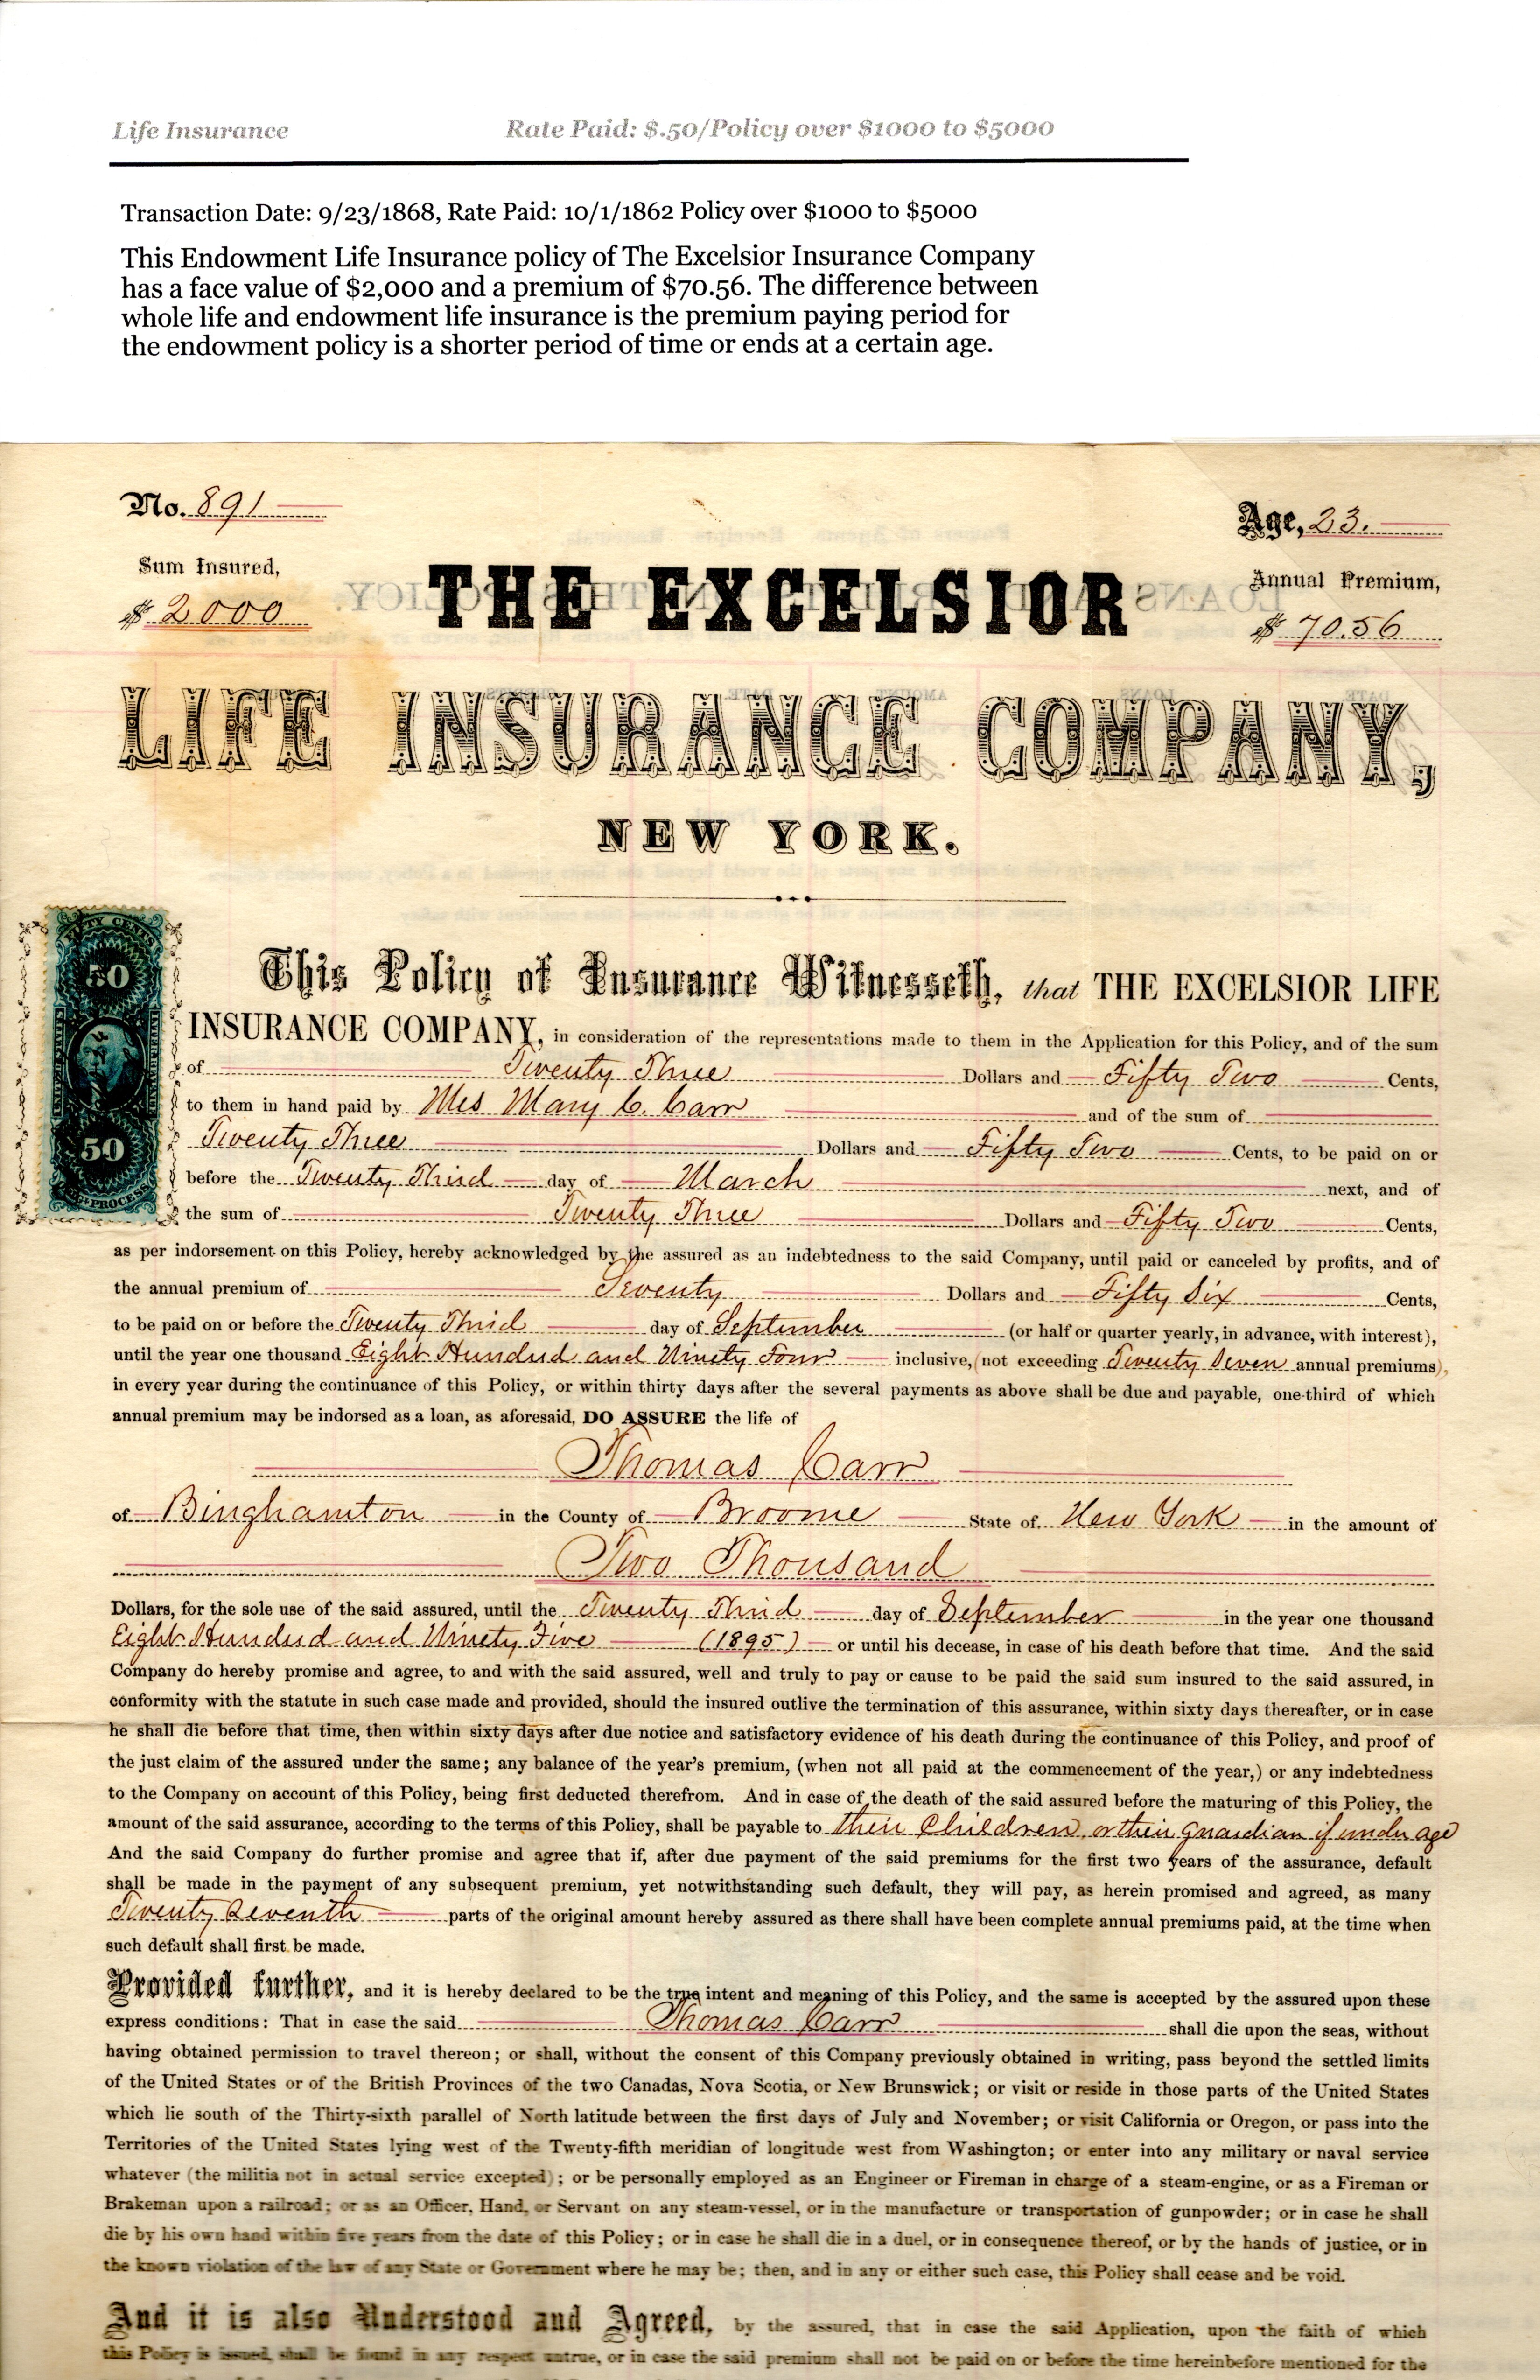 Life Insurance Rate Paid: $.50/Policy over $1000 to $5000
Transaction Date: 9/23/1868, Rate Paid: 10/1/1862 Policy over $1000 to $5000
This Endowment Life Insurance policy of The Excelsior Insurance Company
has a face value of $2,000 and a premium of $70.56. The difference between
whole life and endowment life insurance is the premium paying period for
the endowment policy is a shorter period of time or ends at a certain age.
No. 891
Age, 23.
Sum Insured,
$ 2000
THE EXCELSIOR
Annual Premium,
$ 70.56
LIFE INSURANCE COMPANY,
NEW YORK.
FIFTY CENTS
50
50
This Policy of Insurance Witnesseth, that THE EXCELSIOR LIFE
INSURANCE COMPANY, in consideration of the representations made to them in the Application for this Policy, and of the sum
of Twenty Three Dollars and Fifty Two Cents,
to them in hand paid by Mrs Mary C. Carr and of the sum of
Twenty Three Dollars and Fifty Two Cents, to be paid on or
before the Twenty Third day of March next, and of
the sum of Twenty Three Dollars and Fifty Two Cents,
as per indorsement on this Policy, hereby acknowledged by the assured as an indebtedness to the said Company, until paid or canceled by profits, and of
the annual premium of Seventy Dollars and Fifty Six Cents,
to be paid on or before the Twenty Third day of September (or half or quarter yearly, in advance, with interest),
until the year one thousand Eight Hundred and Ninety Four inclusive, (not exceeding Twenty Seven annual premiums),
in every year during the continuance of this Policy, or within thirty days after the several payments as above shall be due and payable, one-third of which
annual premium may be indorsed as a loan, as aforesaid, DO ASSURE the life of
Thomas Carr
of Binghamton in the County of Broome State of New York in the amount of
Two Thousand
Dollars, for the sole use of the said assured, until the Twenty Third day of September in the year one thousand
Eight Hundred and Ninety Five (1895) or until his decease, in case of his death before that time. And the said
Company do hereby promise and agree, to and with the said assured, well and truly to pay or cause to be paid the said sum insured to the said assured, in
conformity with the statute in such case made and provided, should the insured outlive the termination of this assurance, within sixty days thereafter, or in case
he shall die before that time, then within sixty days after due notice and satisfactory evidence of his death during the continuance of this Policy, and proof of
the just claim of the assured under the same; any balance of the year's premium, (when not all paid at the commencement of the year,) or any indebtedness
to the Company on account of this Policy, being first deducted therefrom. And in case of the death of the said assured before the maturing of this Policy, the
amount of the said assurance, according to the terms of this Policy, shall be payable to their Children, or their guardian if under age
And the said Company do further promise and agree that if, after due payment of the said premiums for the first two years of the assurance, default
shall be made in the payment of any subsequent premium, yet notwithstanding such default, they will pay, as herein promised and agreed, as many
Twenty Seventh parts of the original amount hereby assured as there shall have been complete annual premiums paid, at the time when
such default shall first be made.
Provided further, and it is hereby declared to be the true intent and meaning of this Policy, and the same is accepted by the assured upon these
express conditions: That in case the said Thomas Carr shall die upon the seas, without
having obtained permission to travel thereon; or shall, without the consent of this Company previously obtained in writing, pass beyond the settled limits
of the United States or of the British Provinces of the two Canadas, Nova Scotia, or New Brunswick; or visit or reside in those parts of the United States
which lie south of the Thirty-sixth parallel of North latitude between the first days of July and November; or visit California or Oregon, or pass into the
Territories of the United States lying west of the Twenty-fifth meridian of longitude west from Washington; or enter into any military or naval service
whatever (the militia not in actual service excepted); or be personally employed as an Engineer or Fireman in charge of a steam-engine, or as a Fireman or
Brakeman upon a railroad; or as an Officer, Hand, or Servant on any steam-vessel, or in the manufacture or transportation of gunpowder; or in case he shall
die by his own hand within five years from the date of this Policy; or in case he shall die in a duel, or in consequence thereof, or by the hands of justice, or in
the known violation of the law of any State or Government where he may be; then, and in any or either such case, this Policy shall cease and be void.
And it is also Understood and Agreed, by the assured, that in case the said Application, upon the faith of which
this Policy is issued, shall be found in any respect untrue, or in case the said premium shall not be paid on or before the time hereinbefore mentioned for the